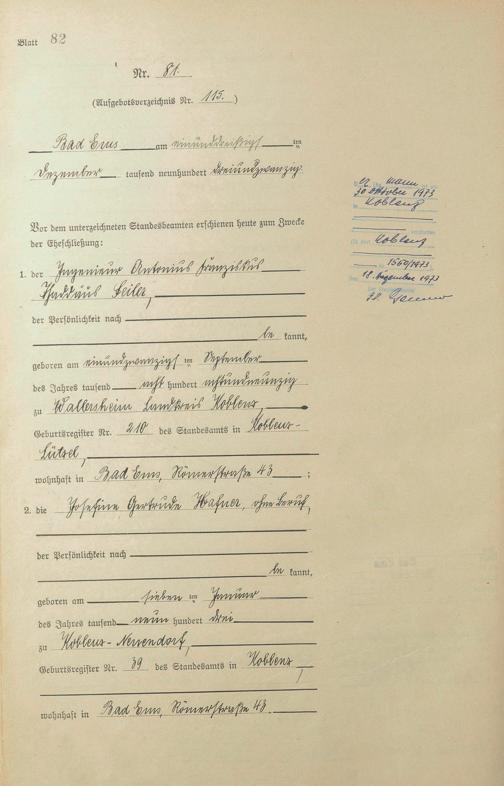 Blatt 82
Nr. 81.
(Aufgebotsverzeichnis Nr. 115.)
Bad Ems am einunddreißigsten
Dezember tausend neunhundert dreiundzwanzig.
Vor dem unterzeichneten Standesbeamten erschienen heute zum Zwecke
der Eheschließung:
1. der Ingenieur Antonius Franziskus
Thaddäus Seiler,
der Persönlichkeit nach
be kannt,
geboren am einundzwanzigsten September
des Jahres tausend acht hundert achtundneunzig
zu Wallersheim Landkreis Koblenz,
Geburtsregister Nr. 210 des Standesamts in Koblenz-
Lützel,
wohnhaft in Bad Ems, Römerstraße 43 ;
2. die Josefine Gertrude Hafner, ohne Beruf,
der Persönlichkeit nach
be kannt,
geboren am sieben ten Januar
des Jahres tausend neun hundert drei
zu Koblenz-Neuendorf,
Geburtsregister Nr. 39 des Standesamts in Koblenz,
wohnhaft in Bad Ems, Römerstraße 43.
mann
30. Oktober 1973
Koblenz
Koblenz
1560/1973
18. Dezember 1973